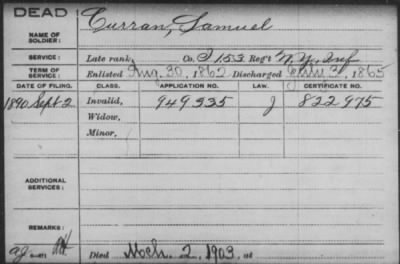 DEAD
Curran, Samuel
NAME OF SOLDIER:
SERVICE: Late rank, Co. I 153 Reg't N.Y. Inf
TERM OF SERVICE: Enlisted Aug. 30, 1862 Discharged 3, 1865
DATE OF FILING. CLASS. APPLICATION NO. LAW. CERTIFICATE NO.
1890 Sept 2 Invalid, 949335 J 822975
Widow,
Minor,
ADDITIONAL SERVICES:
REMARKS:
Died Mch. 2, 1903, at